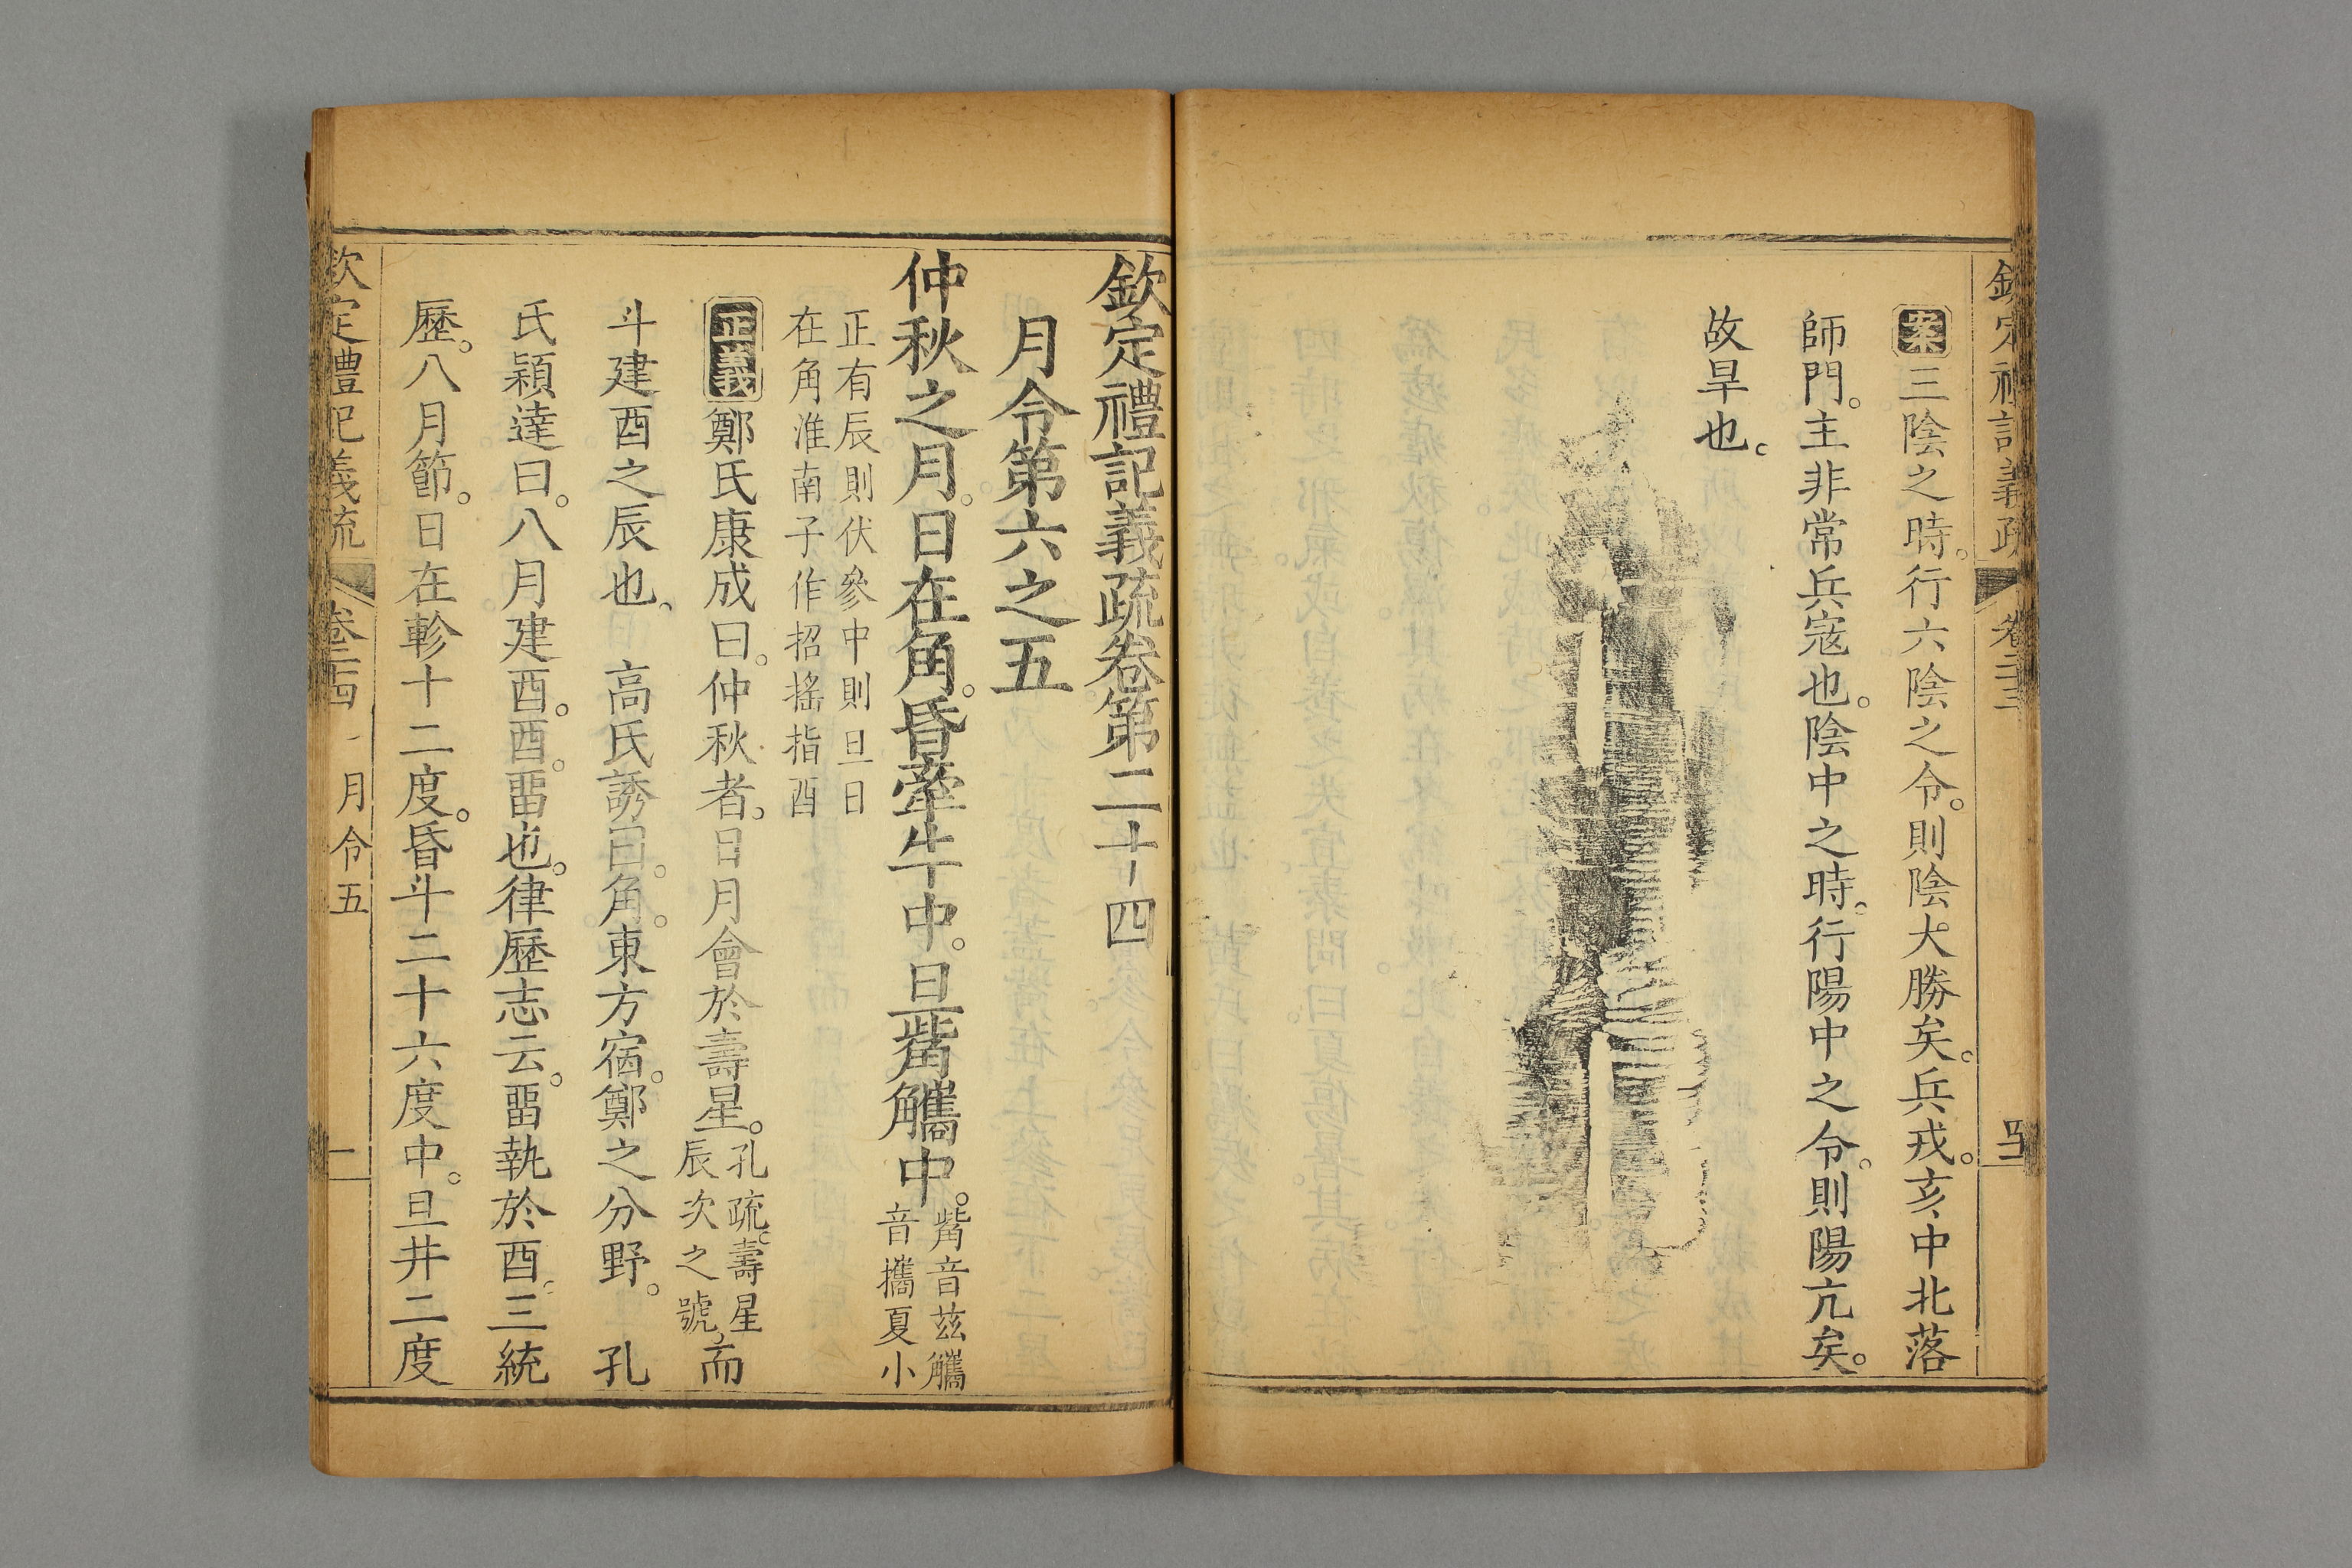 欽定禮記義疏 卷二十三
案三陰之時。行六陰之令。則陰大勝矣。兵戎。亥中北落
師門。主非常兵寇也。陰中之時。行陽中之令。則陽亢矣。
故旱也。
欽定禮記義疏卷第二十四
月令第六之五
仲秋之月。日在角。昏牽牛中。旦觜觿中。觜音玆觿
音攜夏小
正有辰則伏參中則旦日
在角淮南子作招搖指酉
正義鄭氏康成曰。仲秋者。日月會於壽星。孔疏。壽星
辰次之號。而
斗建酉之辰也。 高氏誘曰。角。東方宿。鄭之分野。 孔
氏穎達曰。八月建酉。酉。畱也。律歷志云。畱執於酉。三統
歷。八月節。日在軫十二度。昏斗二十六度中。旦井二度
欽定禮記義疏 卷二十四 月令五 一